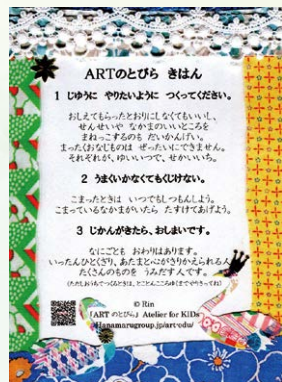 ARTのとびら きはん
1 じゆうに やりたいように つくってください。
おしえてもらったとおりにしなくてもいいし、
せんせいや なかまのいいところを
まねっこするのも だいかんげい。
まったくおなじものは ぜったいにできません。
それぞれが、ゆいいつで、せかいいち。
2 うまくいかなくてもくじけない。
こまったときは いつでもしつもんしよう。
こまっているなかまがいたら たすけてあげよう。
3 じかんがきたら、おしまいです。
なにごとも おわりはあります。
いったんひとくぎり。あたまとこころがきりかえられる人が
たくさんのものを うみだす人です。
(ただしおうちでつくるときは、とことんこころゆくまでやりきってね)
© Rin
「ARTのとびら」Atelier for KIDs
Hanamarugroup.jp/art-edu/